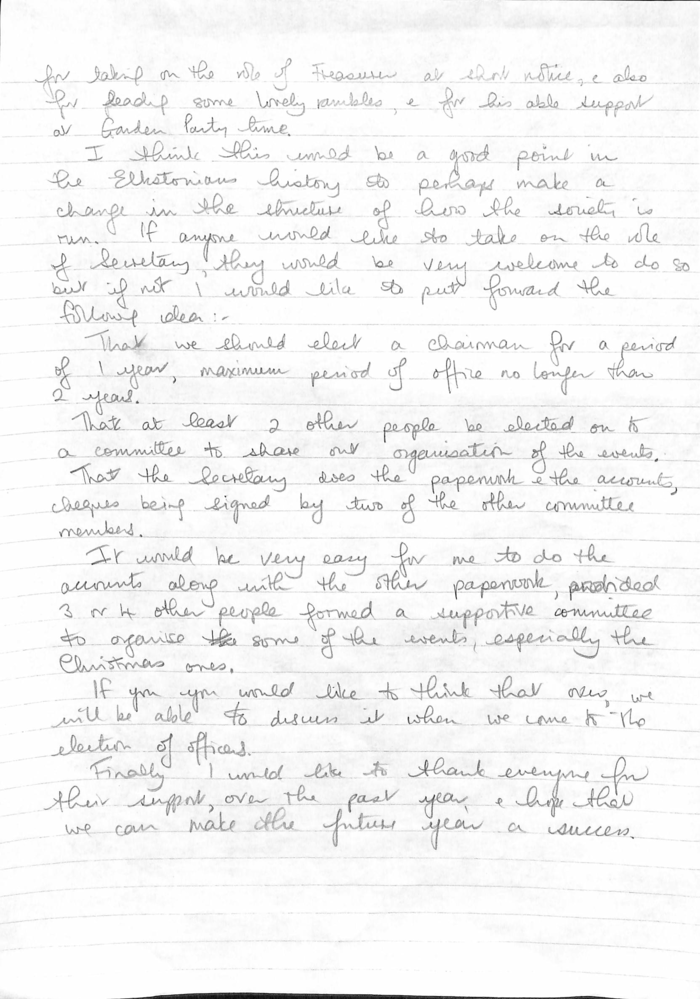 for taking on the role of Treasurer at short notice, & also
for leading some lovely rambles, & for his able support
at Garden Party time.
I think this would be a good point in
the Elkstonians history to perhaps make a
change in the structure of how the society is
run. If anyone would like to take on the role
of Secretary, they would be very welcome to do so
but if not I would like to put forward the
following idea :-
That we should elect a chairman for a period
of 1 year, maximum period of office no longer than
2 years.
That at least 2 other people be elected on to
a committee to share out organisation of the events.
That the Secretary does the paperwork & the accounts,
cheques being signed by two of the other committee
members.
It would be very easy for me to do the
accounts along with the other paperwork, provided
3 or 4 other people formed a supportive committee
to organise the some of the events, especially the
Christmas ones.
If you you would like to think that over, we
will be able to discuss it when we come to the
election of officers.
Finally I would like to thank everyone for
their support, over the past year, & hope that
we can make the future year a success.